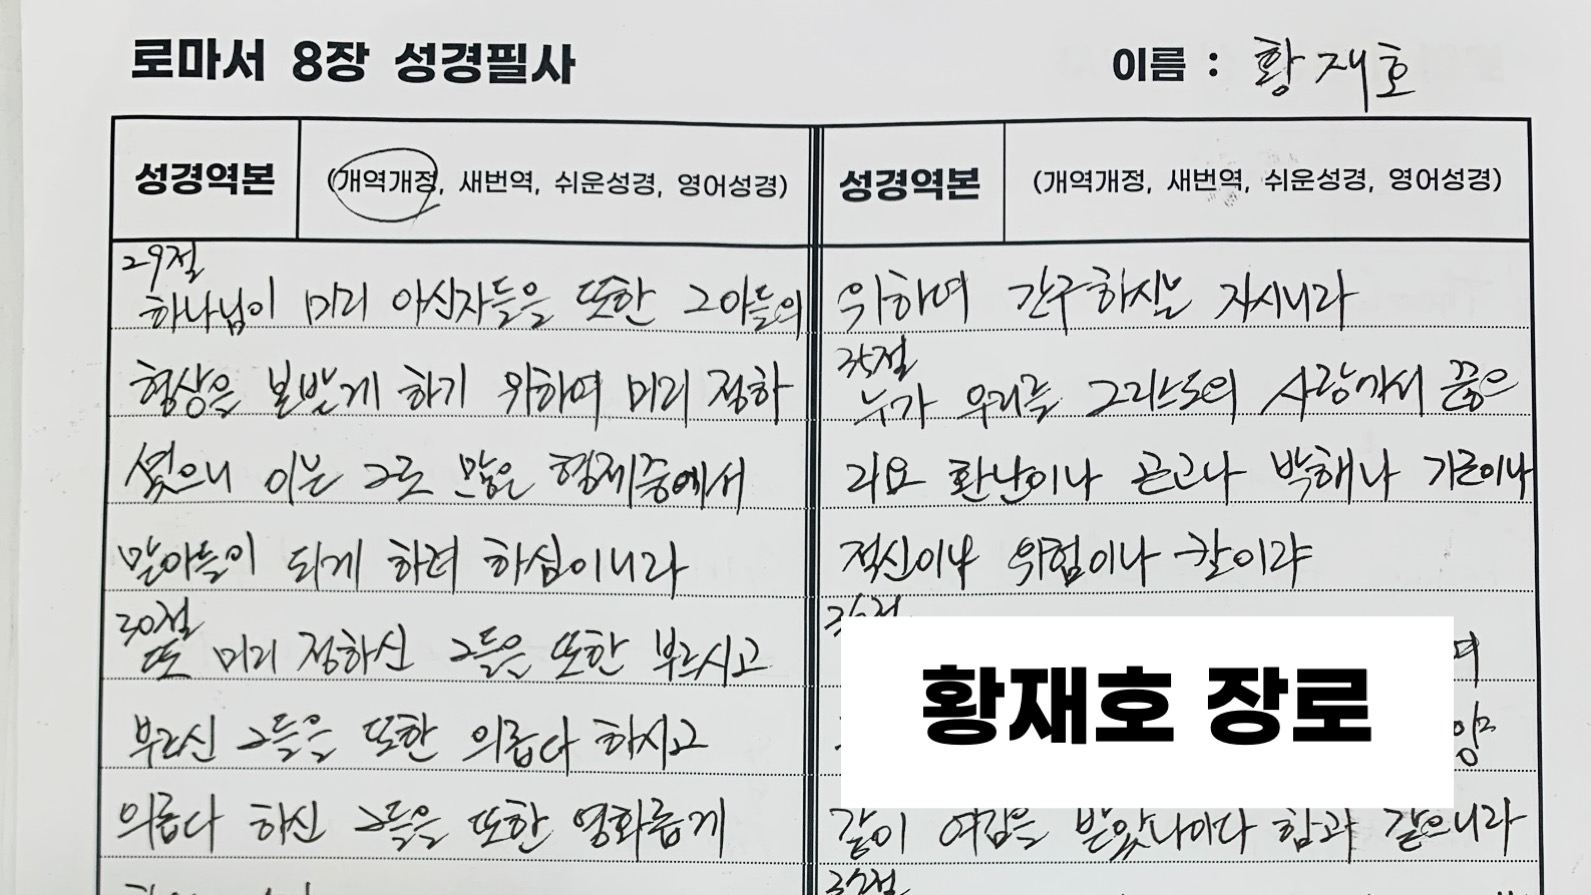 로마서 8장 성경필사
이름 : 황재호
성경역본 (개역개정, 새번역, 쉬운성경, 영어성경)
29절
하나님이 미리 아신자들을 또한 그아들의
형상을 본받게 하기 위하여 미리 정하
셨으니 이는 그로 많은 형제중에서
맏아들이 되게 하려 하심이니라
30절
또 미리 정하신 그들을 또한 부르시고
부르신 그들을 또한 의롭다 하시고
의롭다 하신 그들을 또한 영화롭게
성경역본 (개역개정, 새번역, 쉬운성경, 영어성경)
위하여 간구하시는 자시니라
35절
누가 우리를 그리스도의 사랑에서 끊으
리요 환난이나 곤고나 박해나 기근이나
적신이나 위험이나 칼이랴
36절
황재호 장로
같이 여김을 받았나이다 함과 같으니라
37절